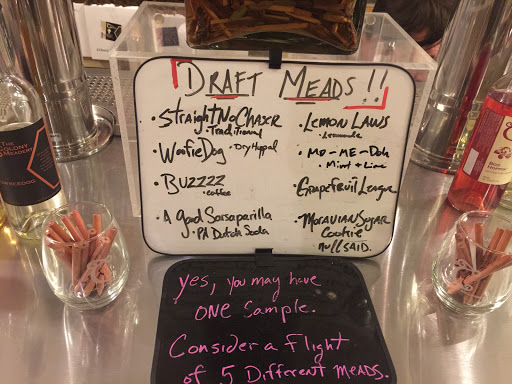 DRAFT MEADS!!
• StraightNoChaser
• Traditional
• WoofieDog • Dry Hopped
• BUZZZZ
• coffee
• A good Sarsaparilla
• PA Dutch Soda
• LEMON LAWS
• Lemonade
• MO-ME-Doh
• Mint + Lime
• Grapefruit League
• MORAVIAN SUGAR
Cookie
nuff SAID.
yes, you may have
ONE Sample.
Consider a Flight
of 5 Different MEADS.
THE
COLONY
MEADERY